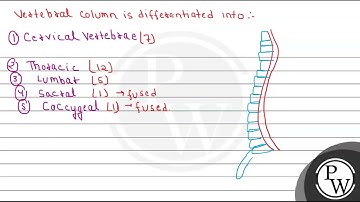 Vertebral column is differentiated into :-
① Cervical Vertebrae (7)
② Thoracic (12)
③ Lumbar (5)
④ Sacral (1) → fused
⑤ Coccygeal (1) → fused
P
W
P
W